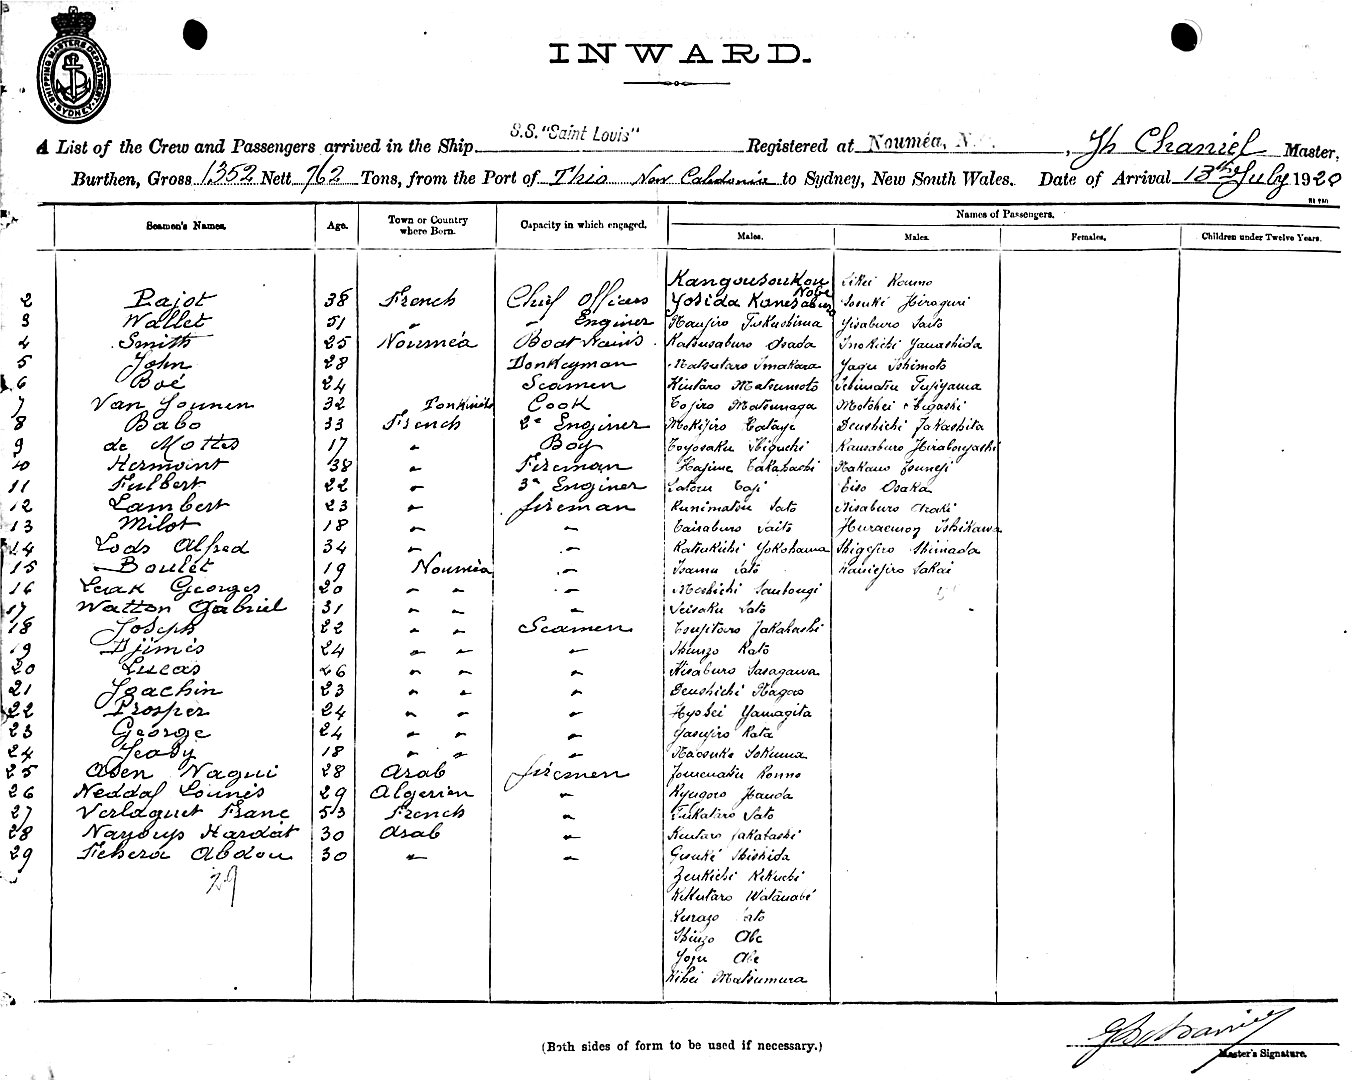 SHIPPING MASTERS DEPARTMENT SYDNEY
INWARD.
A List of the Crew and Passengers arrived in the Ship S.S. "Saint Louis" Registered at Nouméa, N. , Jh Chaniel Master,
Burthen, Gross 1352 Nett 762 Tons, from the Port of Thio New Caledonia to Sydney, New South Wales. Date of Arrival 13th July 1920
Names of Passengers.
Seamen's Names. Age. Town or Country where Born. Capacity in which engaged. Males. Males. Females. Children under Twelve Years.
Kangousoukou Nobe Sikei Konno
2 Pajot 38 French Chief Officer Yosida Kanesaburo Sosuki Hiroguri
3 Wallet 51 " " Enginer Manjiro Tukushima Yisaburo Saito
4 Smith 25 Nouméa Boatswain's Katsusaburo Osada Inokichi Yamashida
5 John 28 Donkeyman Matsutaro Imakara Yagu Ishimoto
6 Boé 24 Seamen Kintaro Matsumoto Ishimatsu Fujiyama
7 Van Sounen 32 Tonkinois Cook Tojiro Matsunaga Motohei Higashi
8 Babo 33 French 2e Enginer Mokijiro Katayi Denshichi Takashita
9 de Mottes 17 " Boy Toyosaku Higuchi Kansaburo Hirabayashi
10 Hermoint 38 " Fireman Hajime Takahashi Nakano Tsuneji
11 Fulbert 22 " 3e Enginer Satoru Taji Eiso Osaka
12 Lambert 23 " fireman Kunimatsu Sato Hisaburo Araki
13 Milot 18 " " Taisaburo Saito Huraemon Ishikawa
14 Lods Alfred 34 " " Katsukichi Yokohama Shigejiro Shimada
15 Boulet 19 Nouméa " Isamu Sato Kaniejiro Sakai
16 Leak Georges 20 " " " Moshichi Santongi
17 Watton Gabriel 31 " " " Seisaku Sato
18 Joseph 22 " " Seamen Tsujitaro Takahashi
19 Djimis 24 " " " Shinzo Kato
20 Lucas 26 " " " Hisaburo Sasagawa
21 Joachin 23 " " " Denshichi Nagao
22 Prosper 24 " " " Hyohei Yamagita
23 George 24 " " " Yasujiro Kata
24 Seaby 18 " " " Naosuke Sokuma
25 Asen Nagui 28 Arab firemen Tomematsu Konno
26 Neddaf Lounis 29 Algerien " Kyugoro Handa
27 Verlaguet Franc 53 French " Fukutaro Sato
28 Nayouys Hardat 30 Arab " Kintaro Takahashi
29 Fehera Abdou 30 " " Gisuke Ishida
29 Zenkichi Kikuchi
Kikutaro Watanabé
Kurazo Sato
Shinzo Abe
Yoju Abe
Kihei Matsumura
(Both sides of form to be used if necessary.)
Master's Signature.